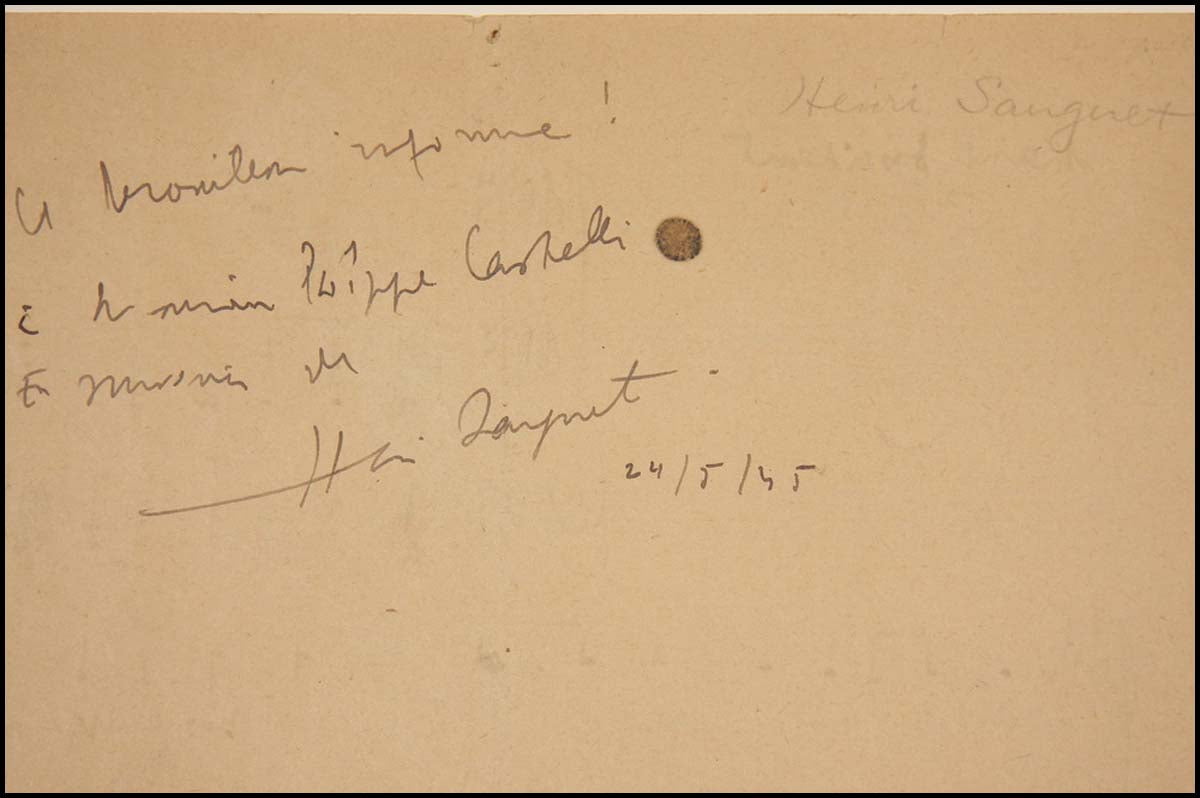 Ce brouillon informe !
à M
Philippe Castelli
En souvenir de
Henri Sauguet .
24/5/45
Henri Sauguet